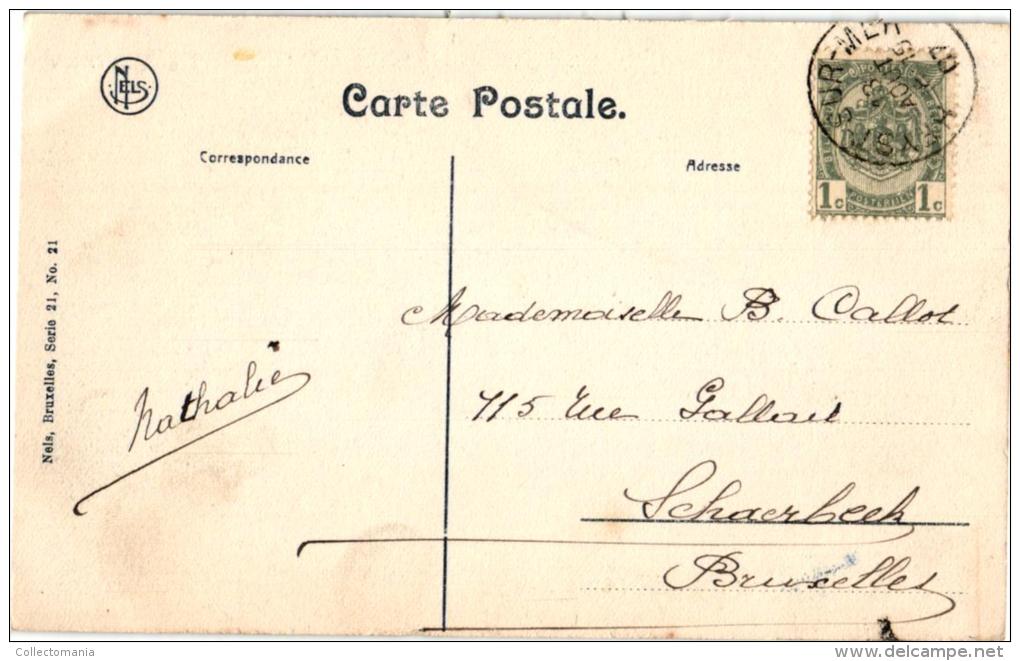 NELS
Carte Postale.
Correspondance
Adresse
SUR-MER
AOUT
1c 1c
POSTERIJEN
Nels, Bruxelles, Serie 21, No. 21
Mademoiselle B. Callot
115 rue Gallait
Schaerbeek
Bruxelles
Nathalie
Collectomania
www.delcampe.net